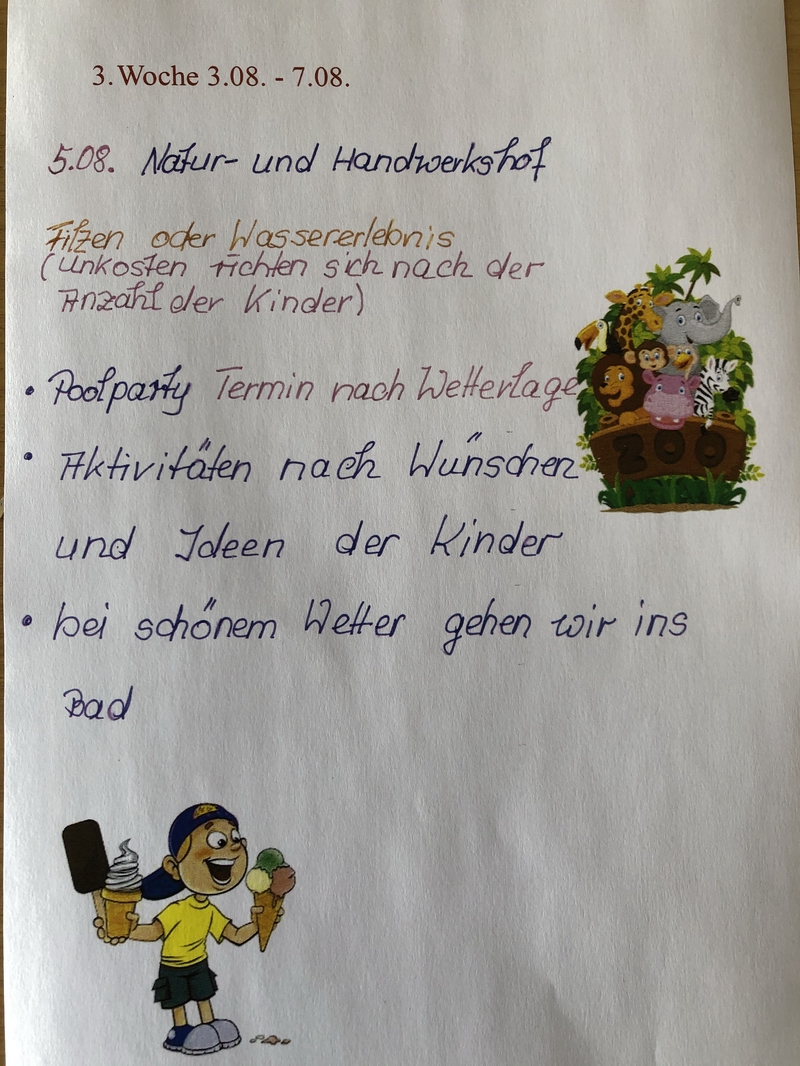 3. Woche 3.08. - 7.08.
5.08. Natur- und Handwerkshof
Filzen oder Wassererlebnis
(Unkosten richten sich nach der
Anzahl der Kinder)
• Poolparty Termin nach Wetterlage
• Aktivitäten nach Wünschen
und Ideen der Kinder
• bei schönem Wetter gehen wir ins
Bad
ZOO